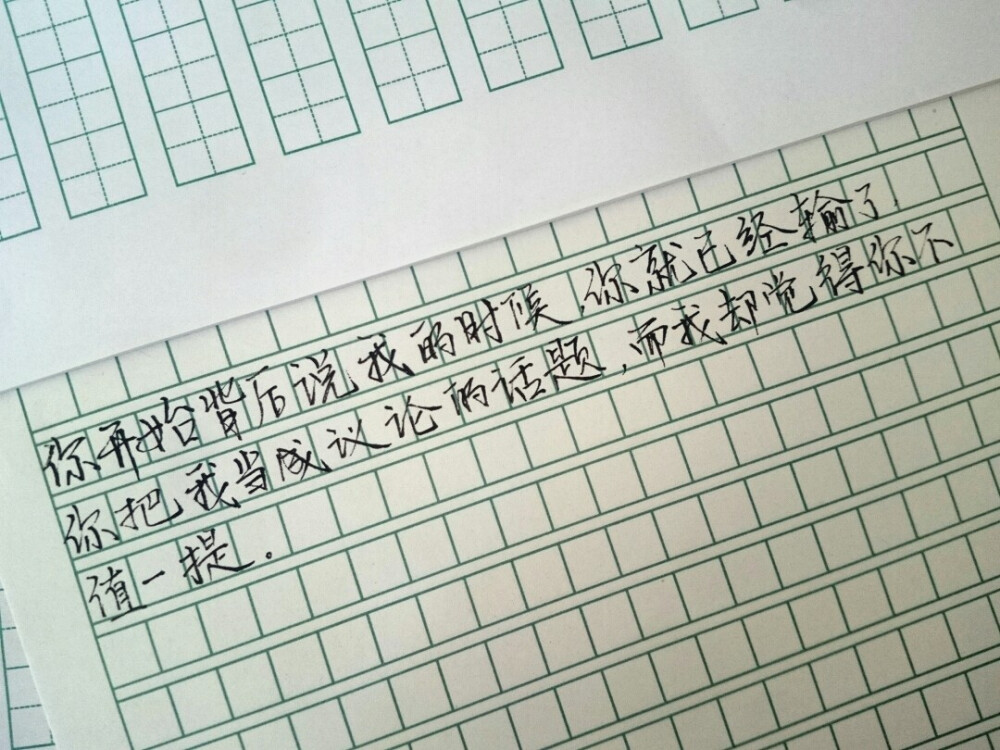 你开始背后说我的时候,你就已经输了,
你把我当成议论的话题,而我却觉得你不
值一提.